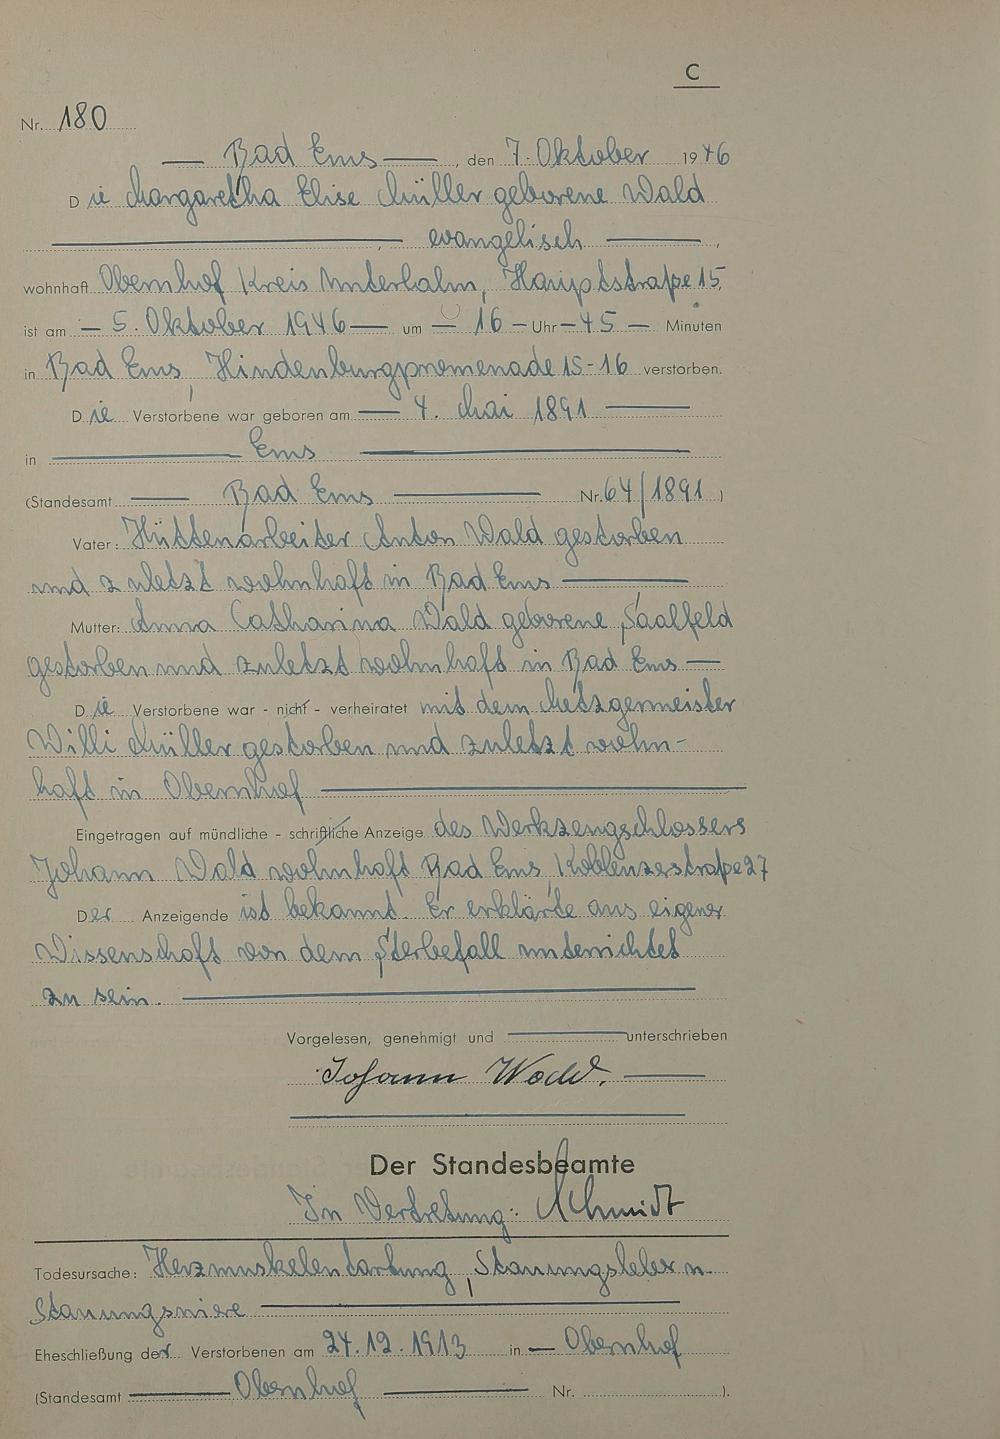 C
Nr. 180
— Bad Ems — , den 7. Oktober 1946
Die Margaretha Elise Müller geborene Wald
— evangelisch — ,
wohnhaft Obernhof Kreis Unterlahn, Hauptstraße 15,
ist am — 5. Oktober 1946 — um — 16 — Uhr — 45 — Minuten
in Bad Ems, Hindenburgpromenade 15-16 verstorben.
Die Verstorbene war geboren am — 4. Mai 1891 —
in — Ems —
(Standesamt — Bad Ems — Nr. 64/1891 )
Vater: Hüttenarbeiter Anton Wald gestorben
und zuletzt wohnhaft in Bad Ems —
Mutter: Anna Catharina Wald geborene Saalfeld
gestorben und zuletzt wohnhaft in Bad Ems —
Die Verstorbene war - nicht - verheiratet mit dem Metzgermeister
Willi Müller gestorben und zuletzt wohn-
haft in Obernhof —
Eingetragen auf mündliche - schriftliche Anzeige des Werkzeugschlossers
Johann Wald wohnhaft Bad Ems, Koblenzerstraße 27
Der Anzeigende ist bekannt. Er erklärte aus eigener
Wissenschaft von dem Sterbefall unterrichtet
zu sein. —
Vorgelesen, genehmigt und — unterschrieben
Johann Wald. —
Der Standesbeamte
In Vertretung: Schmidt
Todesursache: Herzmuskelentartung, Stauungsleber u.
Stauungsniere —
Eheschließung der Verstorbenen am 24.12.1913 in — Obernhof
(Standesamt — Obernhof — Nr. ).